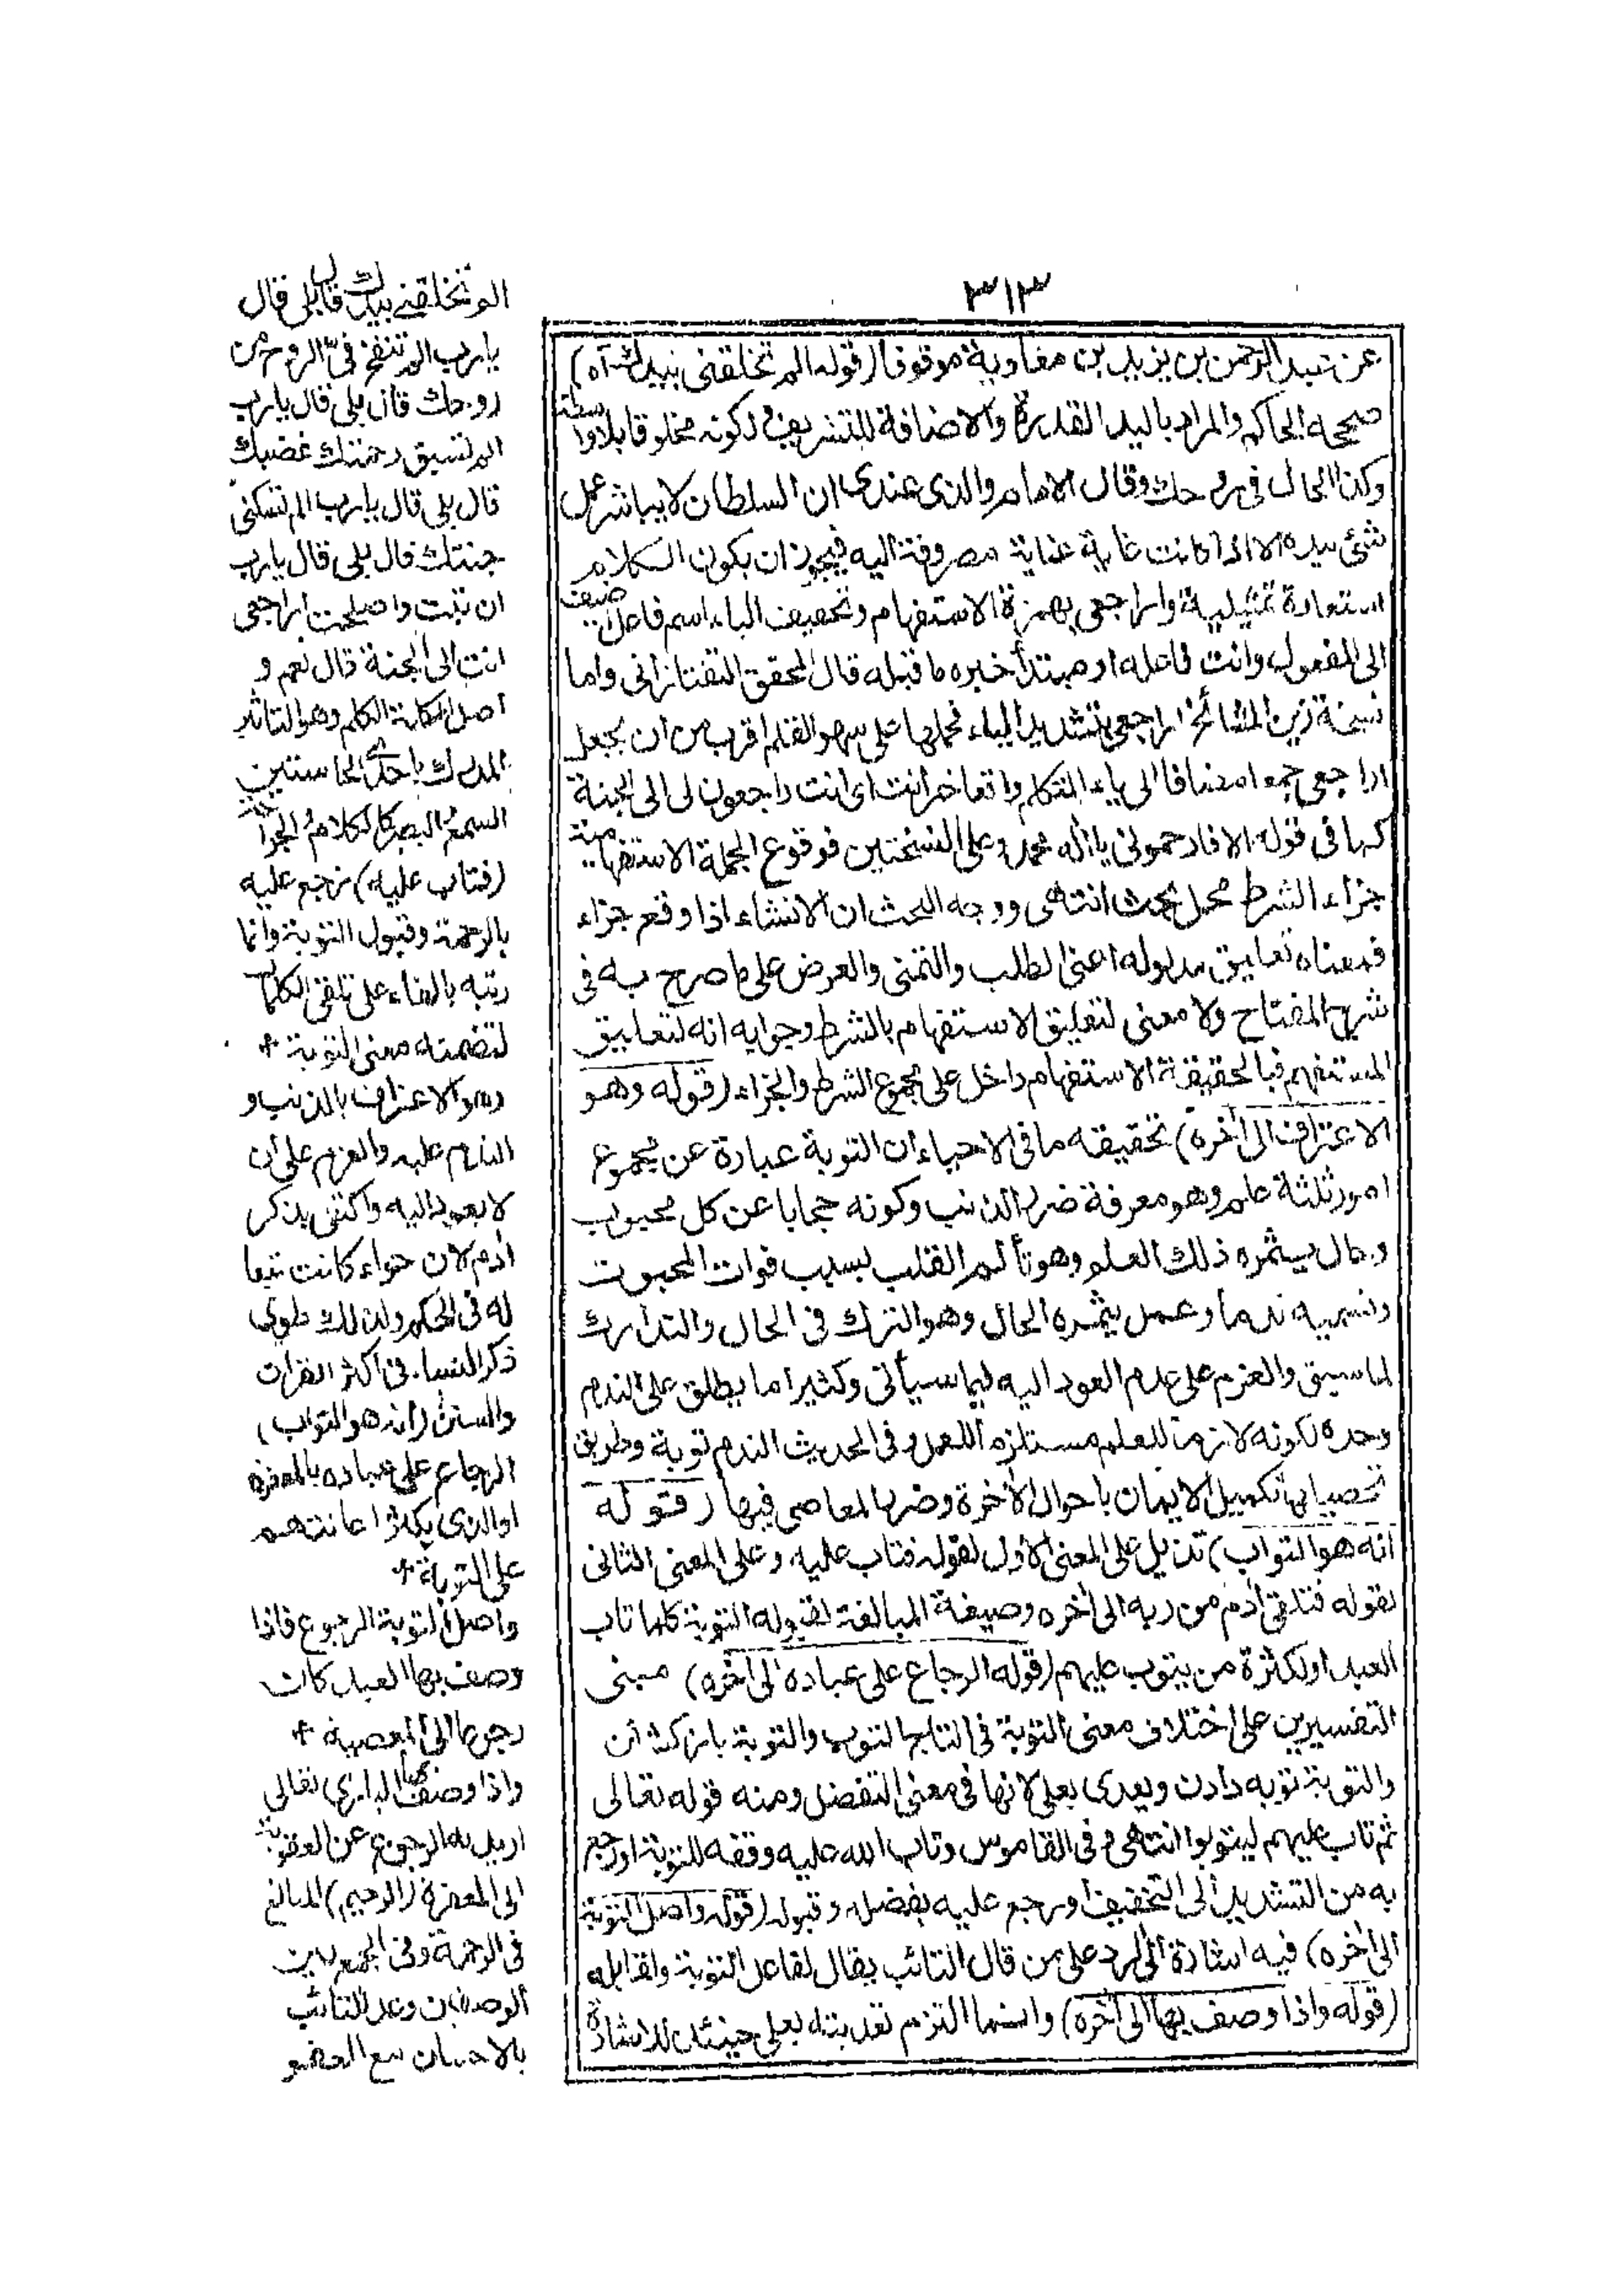 ٣١٣
عن عبد الرحمن بن يزيد بن معاوية موقوفا (قوله الم تخلقنى بيدك آه)
صححه الحاكم والمراد باليد القدرة والاضافة للتشريف لكونه مخلوقا بلا واسطة
وكذا الحال فى روحك وقال الامام والذى عندى ان السلطان لا يباشر عمل
شئ بيده الا اذا كانت غاية عناية مصروفة اليه فيجوز ان يكون الكلام
استعارة تمثيلية واراجعى بهمزة الاستفهام وتخفيف الياء اسم فاعل اضيف
الى المفعول وانت فاعله او مبتدأ خبره ما قبله قال المحقق التفتازانى واما
نسخة زين المشائخ اراجعى بتشديد الياء فحملها على سهو القلم اقرب من ان يجعل
اراجعى جمعا مضافا الى ياء المتكلم واقعا خبر انت اى انت راجعون لى الى الجنة
كما فى قوله الا فارحمونى يا اله محمد وعلى النسختين فوقوع الجملة الاستفهامية
جزاء الشرط محل بحث انتهى ووجه البحث ان الانشاء اذا وقع جزاء
فمعناه تعليق مدلوله اعنى الطلب والتمنى والعرض على ما صرح به فى
شرح المفتاح ولا معنى لتعليق الاستفهام بالشرط وجوابه انه لتعليق
المستفهم فبالحقيقة الاستفهام داخل على مجموع الشرط والجزاء (قوله وهو
الاعتراف الى آخره) تحقيقه ما فى الاحياء ان التوبة عبارة عن مجموع
امور ثلثة علم وهو معرفة ضرر الذنب وكونه حجابا عن كل محبوب
وحال يثمره ذلك العلم وهو تألم القلب بسبب فوات المحبوب
ونسميه ندما وعمل يثمره الحال وهو الترك فى الحال والتدارك
لما سبق والعزم على عدم العود اليه فيما سيأتى وكثيرا ما يطلق على الندم
وحده لكونه لازما للعلم مستلزما للعمل وفى الحديث الندم توبة وطريق
تحصيلها تكميل الايمان باحوال الآخرة وضرر المعاصى فيها (قوله
انه هو التواب) تذييل على المعنى الاول لقوله فتاب عليه وعلى المعنى الثانى
لقوله فتلقى آدم من ربه الى آخره وصيغة المبالغة لقبوله التوبة كلما تاب
العبد او لكثرة من يتوب عليهم (قوله الرجاع على عباده الى آخره) مبنى
التفسيرين على اختلاف معنى التوبة فى التاج التوب والتوبة باز گشتن
والتوبة توبه دادن ويعدى بعلى لانها فى معنى التفضل ومنه قوله تعالى
ثم تاب عليهم ليتوبوا انتهى وفى القاموس وتاب الله عليه وفقه للتوبة او رجع
به من التشديد الى التخفيف او رجع عليه بفضله وقبوله (قوله واصل التوبة
الى آخره) فيه اشارة الى الرد على من قال التائب يقال لفاعل التوبة ولقابله
(قوله واذا وصف بها الى آخره) وانما التزم تعديته بعلى حينئذ للاشارة
الم تخلقنى بيدك قال بلى قال
يا رب الم تنفخ فىّ الروح من
روحك قال بلى قال يا رب
الم تسبق رحمتك غضبك
قال بلى قال يا رب الم تسكنى
جنتك قال بلى قال يا رب
ان تبت واصلحت اراجعى
انت الى الجنة قال نعم و
اصل الكلمة الكلم وهو التاثير
المدرك باحدى الحاستين
السمع والبصر كالكلام والجراحة
(فتاب عليه) رجع عليه
بالرحمة وقبول التوبة وانما
رتبه بالفاء على تلقى الكلمات
لتضمنه معنى التوبة
وهو الاعتراف بالذنب و
الندم عليه والعزم على ان
لا يعود اليه واكتفى بذكر
آدم لان حواء كانت تبعا
له فى الحكم ولذلك طوى
ذكر النساء فى اكثر القرآن
والسنن (انه هو التواب)
الرجاع على عباده بالمغفرة
او الذى يكثر اعانتهم
على التوبة
واصل التوبة الرجوع فاذا
وصف بها العبد كان
رجوعا الى المعصية
واذا وصف بها البارى تعالى
اريد به الرجوع عن العقوبة
الى المغفرة (الرحيم) المبالغ
فى الرحمة وفى الجمع بين
الوصفين وعد للتائب
بالاحسان مع العفو